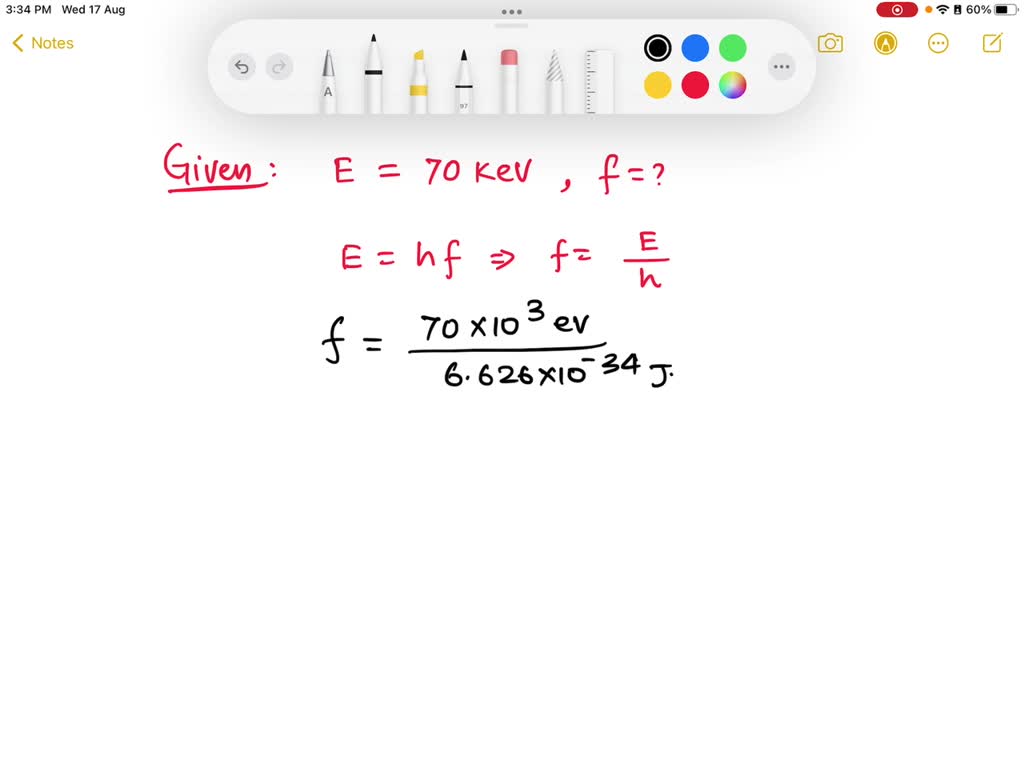 3:34 PM Wed 17 Aug
60%
Notes
A
97
Given: E = 70 KeV, f = ?
E = hf ⇒ f = E/h
f = 70 × 10³ ev / 6.626 × 10⁻³⁴ J.